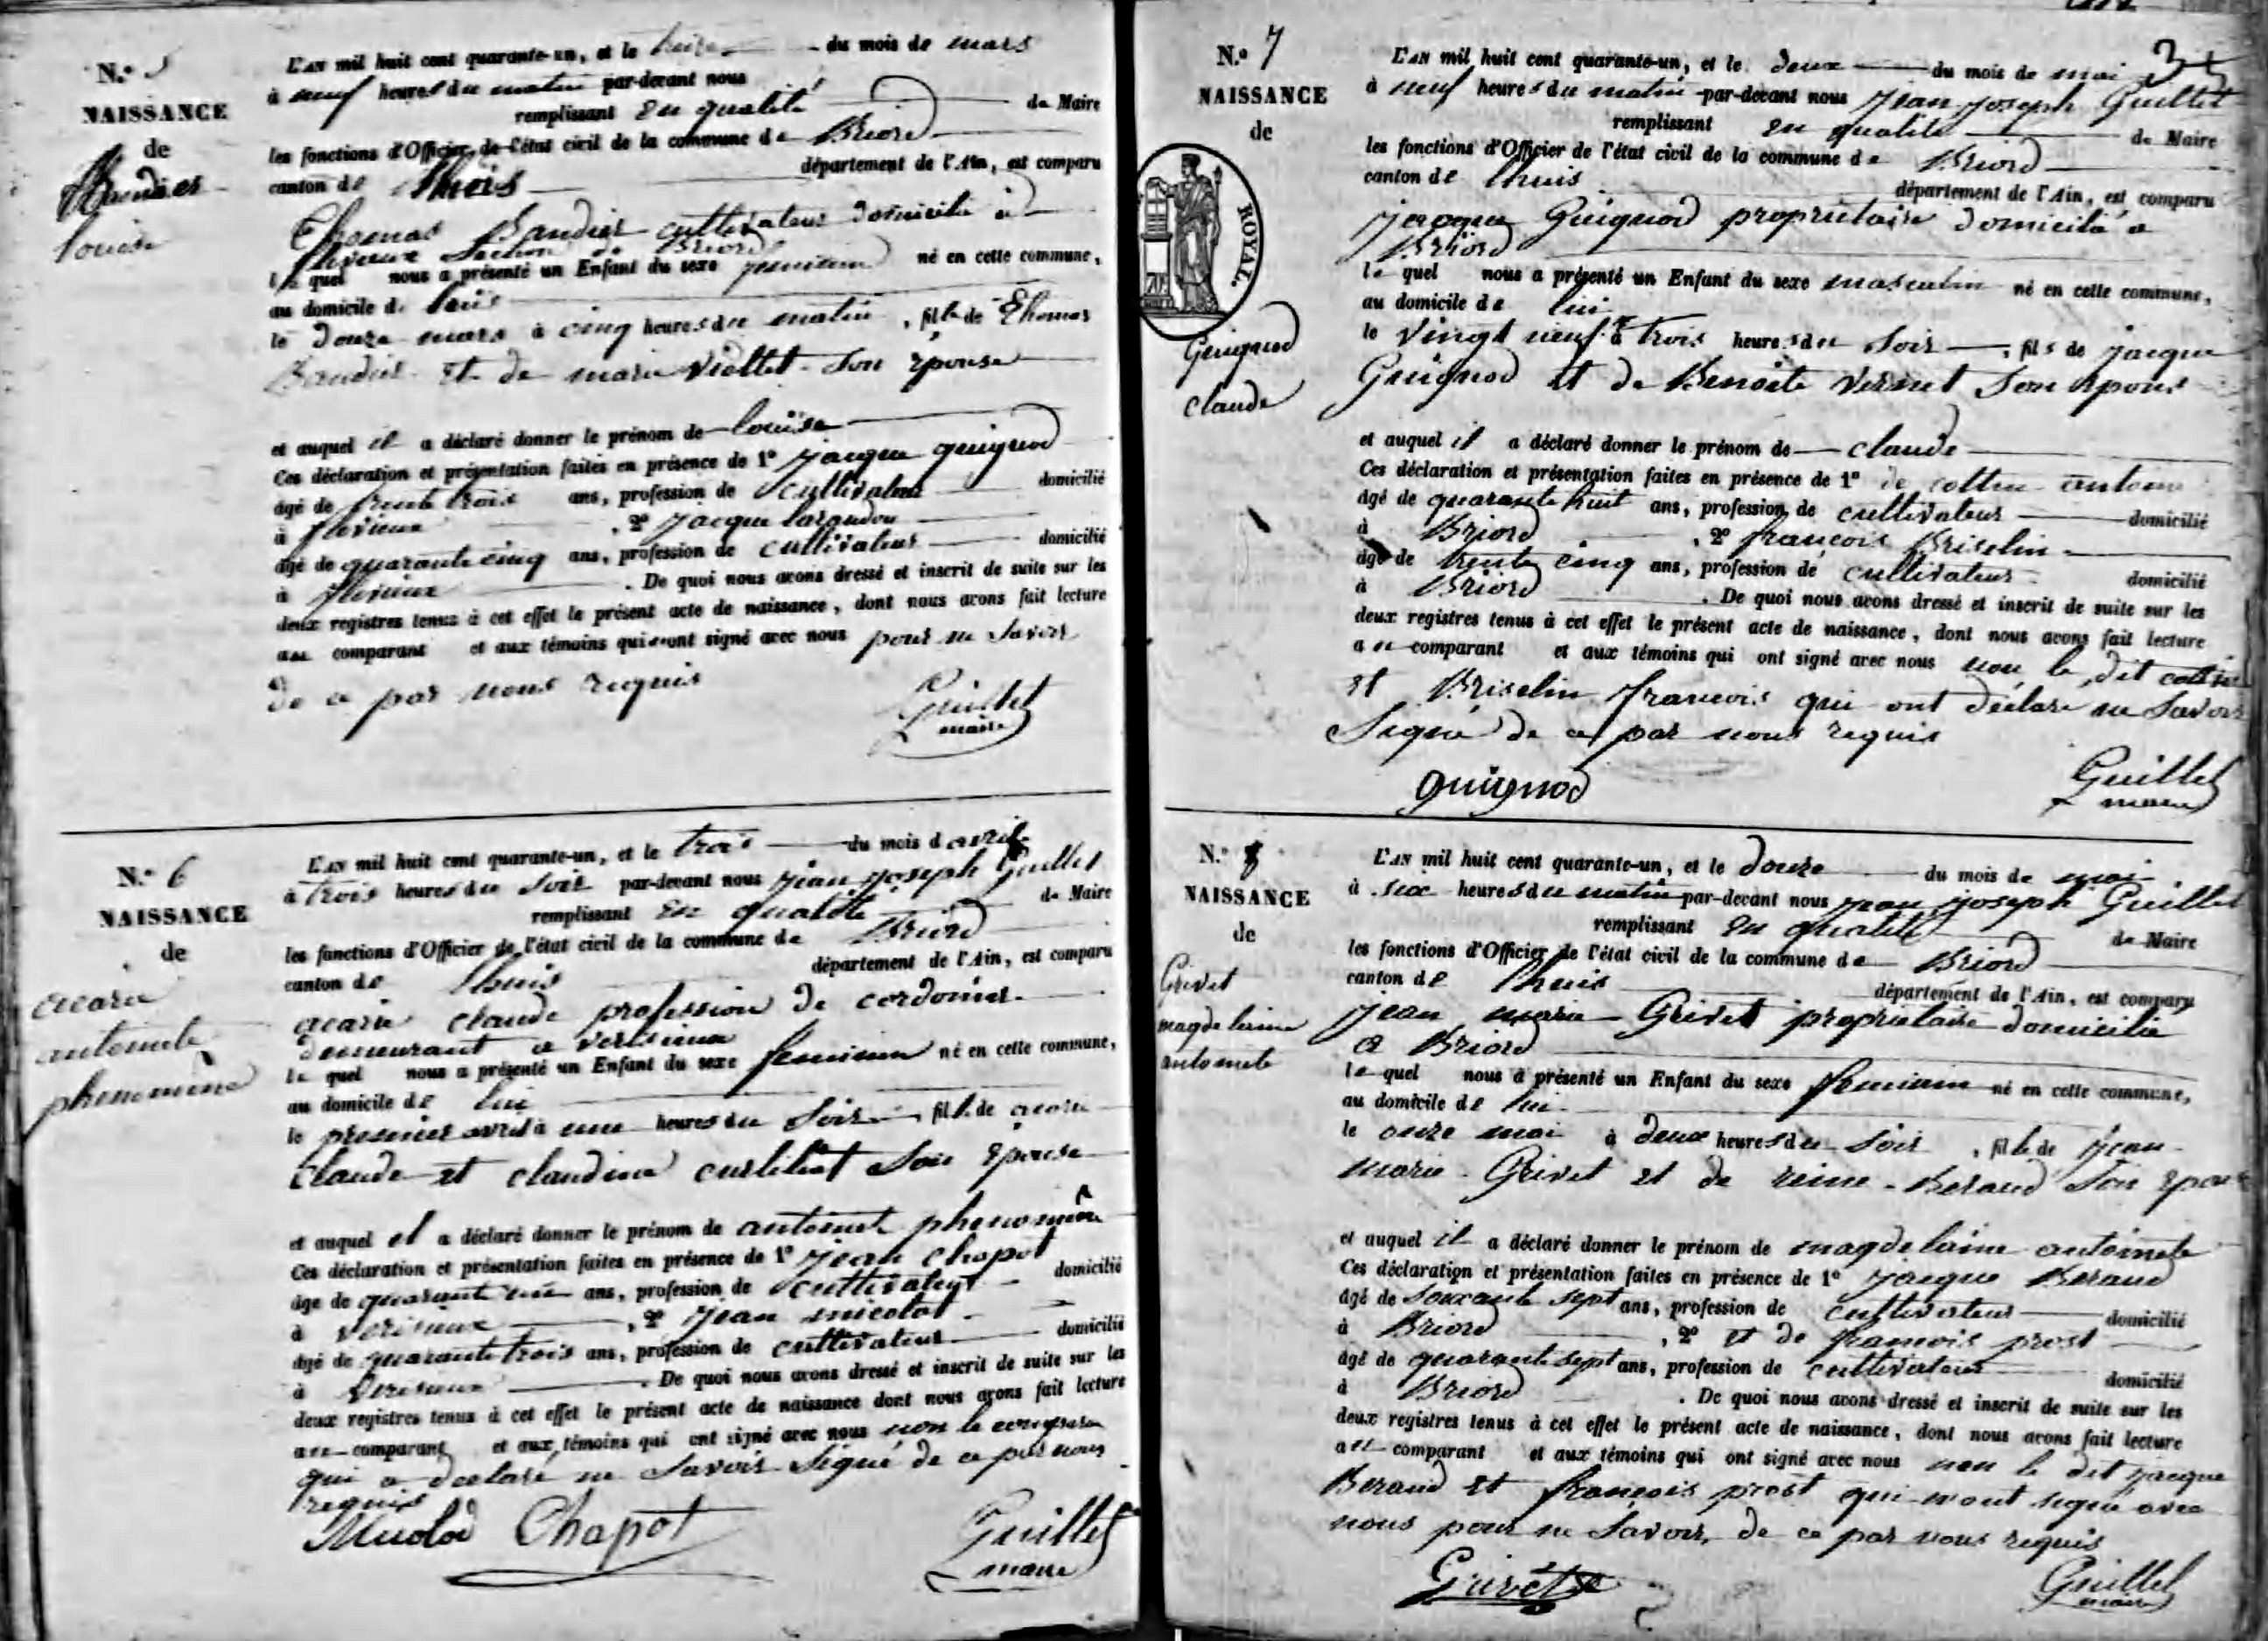 N.° 5
NAISSANCE
de
Baudier
louise
L'AN mil huit cent quarante-un, et le treize du mois de mars
à neuf heures du matin par-devant nous
remplissant en qualité de Maire
les fonctions d'Officier de l'état civil de la commune de Briord
canton de lhuis département de l'Ain, est comparu
Thomas Baudier cultivateur domicilié à
flevieux Section de Briord
le quel nous a présenté un Enfant du sexe feminin né en cette commune,
au domicile de
le douze mars à cinq heures du matin, fille de Thomas
Baudier et de marie Viollet son épouse
et auquel il a déclaré donner le prénom de louise
Ces déclaration et présentation faites en présence de 1° jacque guignod
âgé de trente trois ans, profession de cultivateur domicilié
à flevieux, 2° jacque
âgé de quarante cinq ans, profession de cultivateur domicilié
à flevieux. De quoi nous avons dressé et inscrit de suite sur les
deux registres tenus à cet effet le présent acte de naissance, dont nous avons fait lecture
au comparant et aux témoins qui n'ont signé avec nous pour ne savoir
de ce par nous requis
Guillet
maire
N.° 6
NAISSANCE
de
acarie
antoinete
phenomène
L'AN mil huit cent quarante-un, et le trois du mois d'avril
à trois heures du soir par-devant nous jean joseph Guillet
remplissant en qualité de Maire
les fonctions d'Officier de l'état civil de la commune de Briord
canton de lhuis département de l'Ain, est comparu
acarie claude profession de cordonier
demeurant a verisieux
le quel nous a présenté un Enfant du sexe feminin né en cette commune,
au domicile de lui
le premier avril à une heures du soir, fille de acarie
claude et claudine son épouse
et auquel il a déclaré donner le prénom de antoinete phenomène
Ces déclaration et présentation faites en présence de 1° jean chapot
âgé de quarante ans, profession de cultivateur domicilié
à verisieux, 2° jean micolod
âgé de quarante trois ans, profession de cultivateur domicilié
à verisieux. De quoi nous avons dressé et inscrit de suite sur les
deux registres tenus à cet effet le présent acte de naissance dont nous avons fait lecture
au comparant et aux témoins qui ont signé avec nous non le comparan
qui a declaré ne savoir signé de ce par nous
requis
Micolod Chapot
Guillet
maire
N.° 7
NAISSANCE
de
ROYAL.
Guignod
claude
L'AN mil huit cent quarante-un, et le deux du mois de mai
à neuf heures du matin par-devant nous jean joseph Guillet
remplissant en qualité de Maire
les fonctions d'Officier de l'état civil de la commune de Briord
canton de lhuis département de l'Ain, est comparu
jacque Guignod proprietaire domicilié a
Briord
le quel nous a présenté un Enfant du sexe masculin né en cette commune,
au domicile de lui
le vingt neuf à trois heures du soir, fils de jacque
Guignod et de Benoite vernet son epouse
et auquel il a déclaré donner le prénom de claude
Ces déclaration et présentation faites en présence de 1° antoine
âgé de quarante huit ans, profession de cultivateur domicilié
à Briord, 2° françois Briselin
âgé de trente cinq ans, profession de cultivateur domicilié
à Briord. De quoi nous avons dressé et inscrit de suite sur les
deux registres tenus à cet effet le présent acte de naissance, dont nous avons fait lecture
au comparant et aux témoins qui ont signé avec nous non le dit
et Briselin françois qui ont déclaré ne savoir
signé de ce par nous requis
guignod
Guillet
maire
N.° 8
NAISSANCE
de
Grivet
magdelaine
antoinete
L'AN mil huit cent quarante-un, et le douze du mois de mai
à six heures du matin par-devant nous jean joseph Guillet
remplissant en qualité de Maire
les fonctions d'Officier de l'état civil de la commune de Briord
canton de lhuis département de l'Ain, est comparu
jean marie Grivet proprietaire domicilié
a Briord
le quel nous a présenté un Enfant du sexe feminin né en cette commune,
au domicile de lui
le onze mai à deux heures du soir, fille de jean
marie Grivet et de reine Beraud son epouse
et auquel il a déclaré donner le prénom de magdelaine antoinete
Ces déclaration et présentation faites en présence de 1° jacque Beraud
âgé de soixante sept ans, profession de cultivateur domicilié
à Briord, 2° et de francois prost
âgé de quarante sept ans, profession de cultivateur domicilié
à Briord. De quoi nous avons dressé et inscrit de suite sur les
deux registres tenus à cet effet le présent acte de naissance, dont nous avons fait lecture
au comparant et aux témoins qui ont signé avec nous non le dit jacque
Beraud et françois prost qui n'ont signé avec
nous pour ne savoir de ce par nous requis
Grivet
Guillet
maire